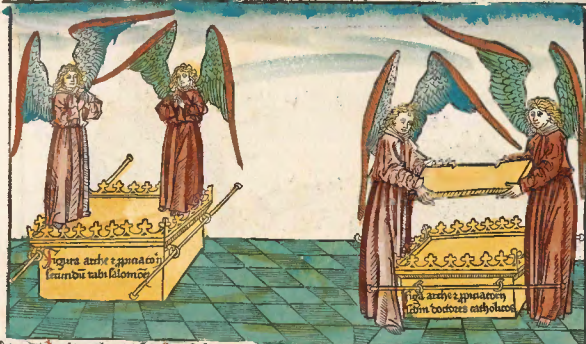 Figura arche ⁊ ꝓpiciatoꝛij
secundū rabi salomonē
Figa arche ⁊ ꝓpiciatoꝛij
scdm doctores catholicos